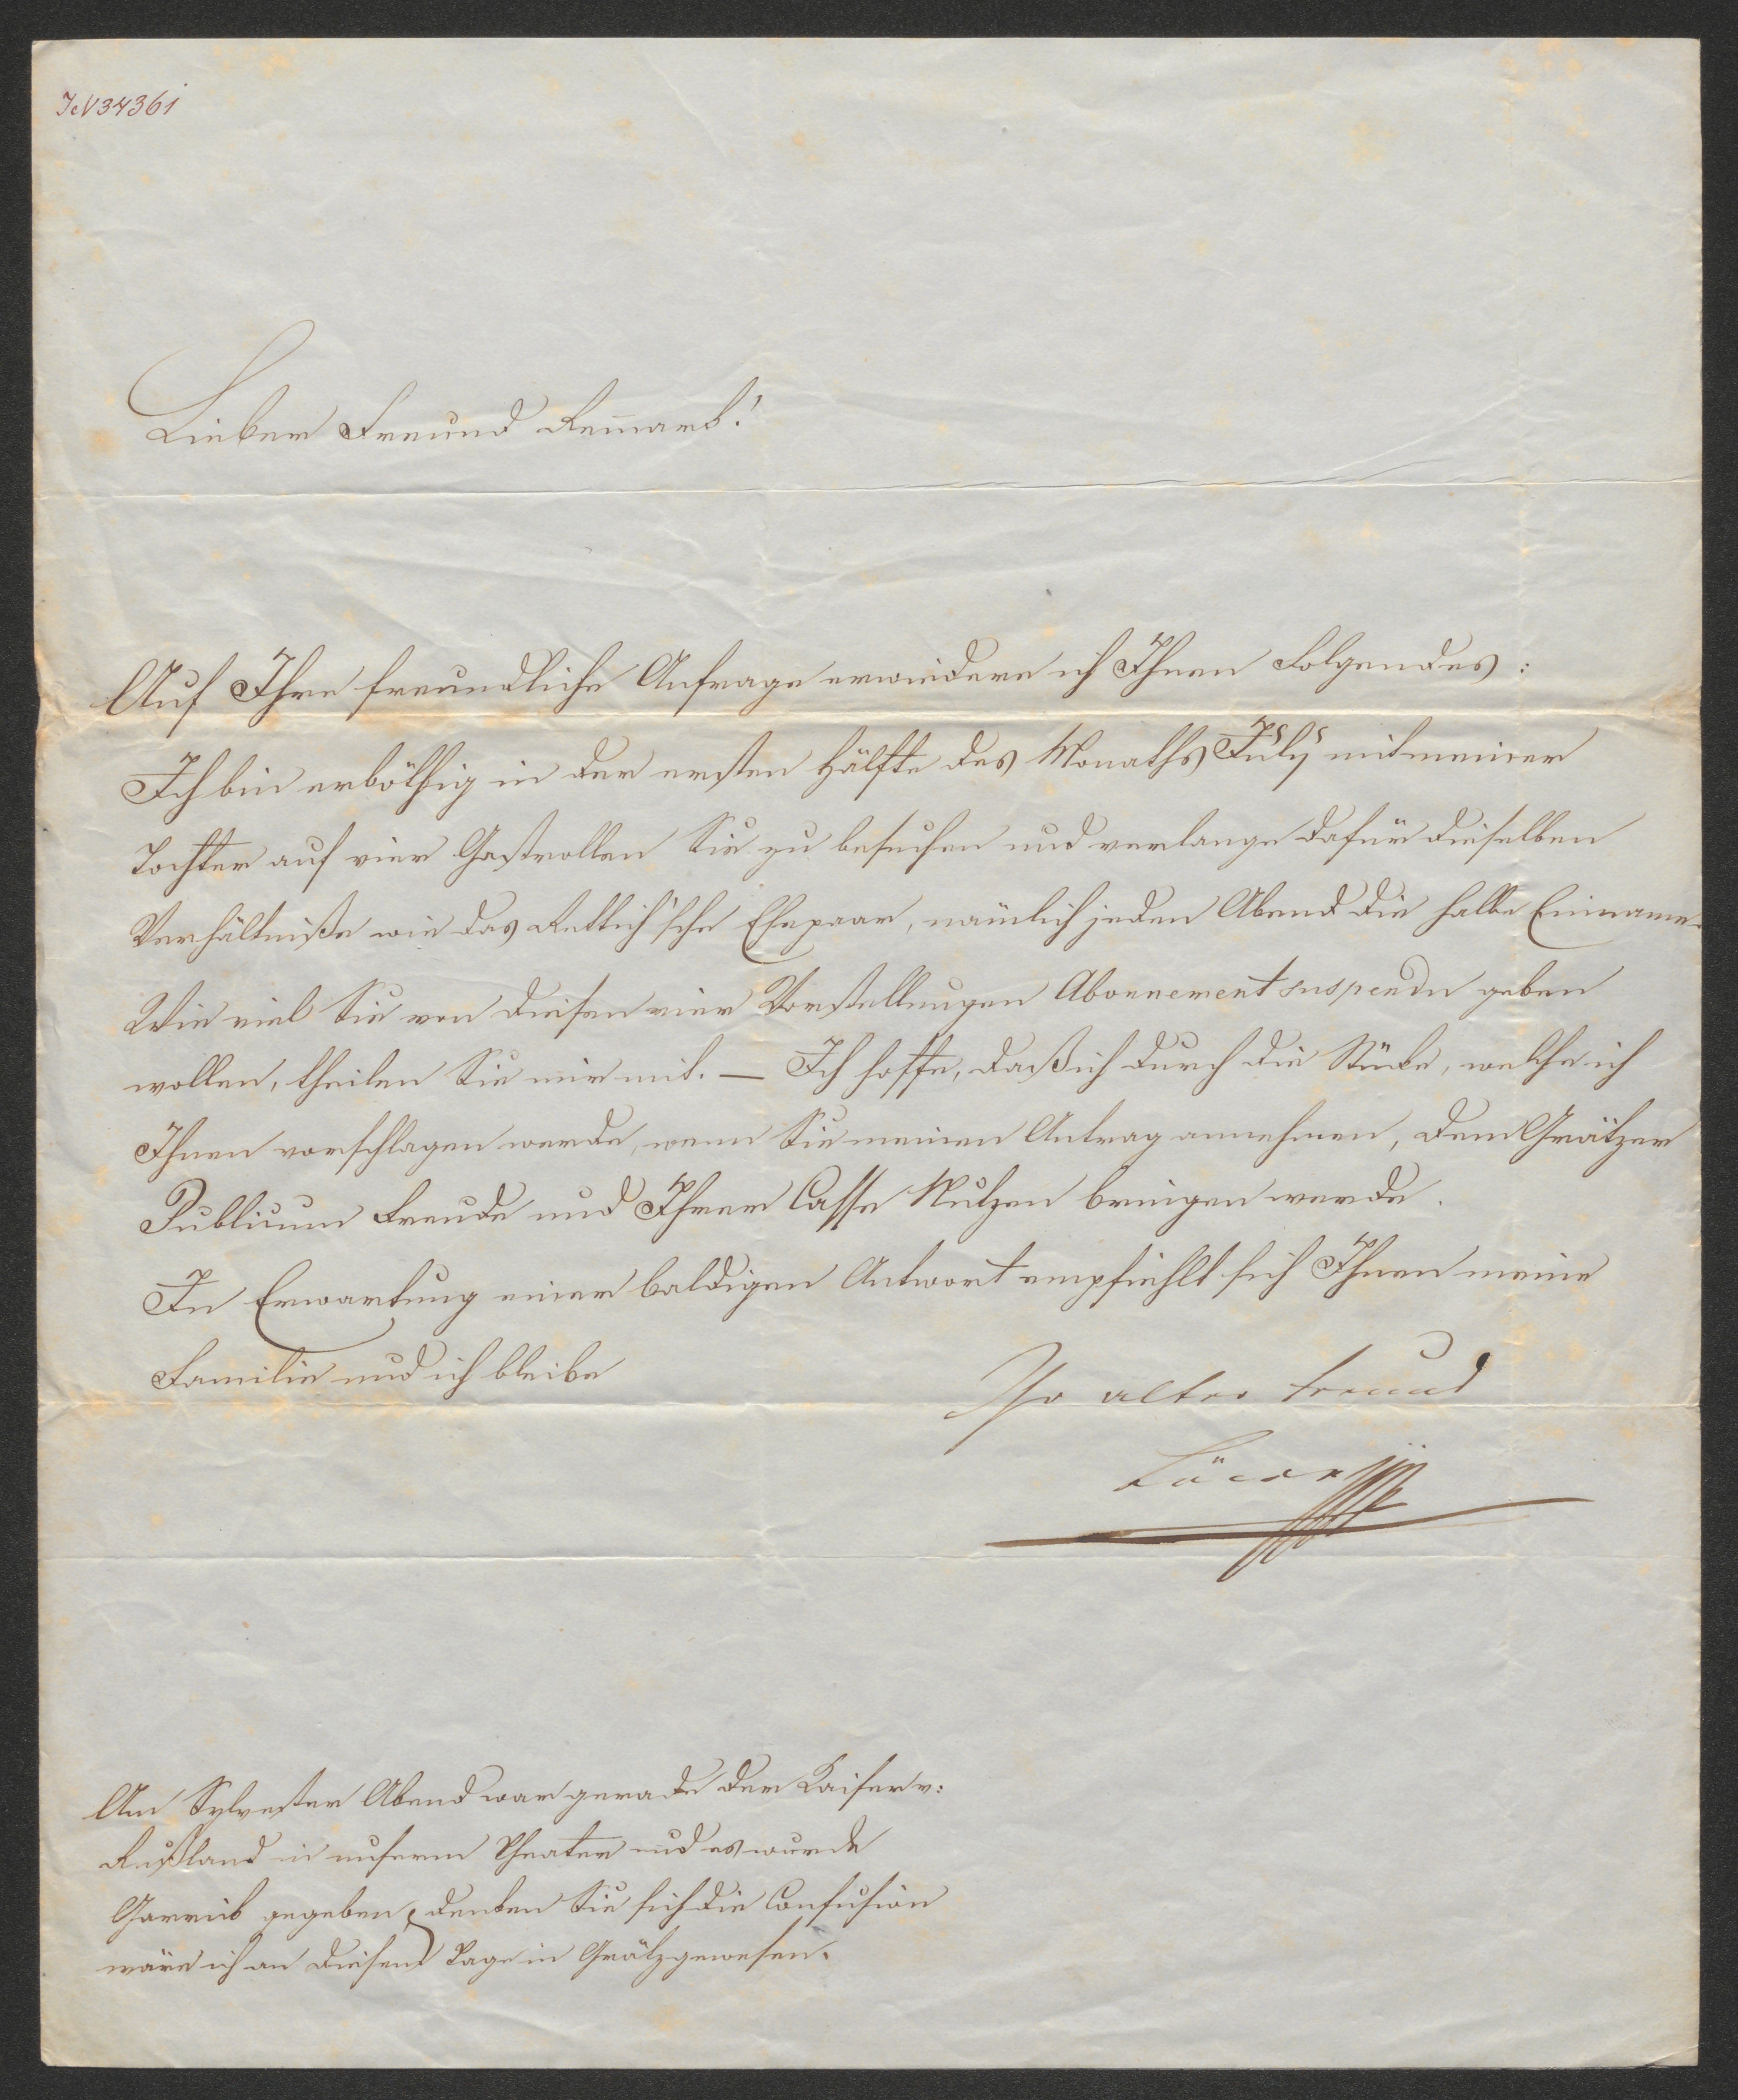 JN 34361
Lieber Freund Remark!
Auf Ihre freundliche Anfrage erwiedere ich Ihnen Folgendes:
Ich bin erböthig in der ersten Hälfte des Monaths July mit meiner
Tochter auf vier Gastrollen Sie zu besuchen und verlange dafür dieselben
Verhältniße wie das Rettich'sche Ehepaar, nämlich jeden Abend die halbe Einname.
Wie viel Sie von diesen vier Vorstellungen Abonnement suspendu geben
wollen, theilen Sie mir mit. — Ich hoffe, daß ich durch die Stücke, welche ich
Ihnen vorschlagen werde, wenn Sie meinen Antrag annehmen, dem Grätzer
Publicum Freude und Ihrer Casse Nutzen bringen werde.
In Erwartung einer baldigen Antwort empfiehlt sich Ihnen meine
Familie und ich bleibe
Ihr alter Freund
Am Sylvester Abend war gerade der Kaiser v:
Rußland in unserm Theater und es wurde
Garrick gegeben, denken Sie sich die Confusion
wäre ich an diesem Tage in Grätz gewesen.